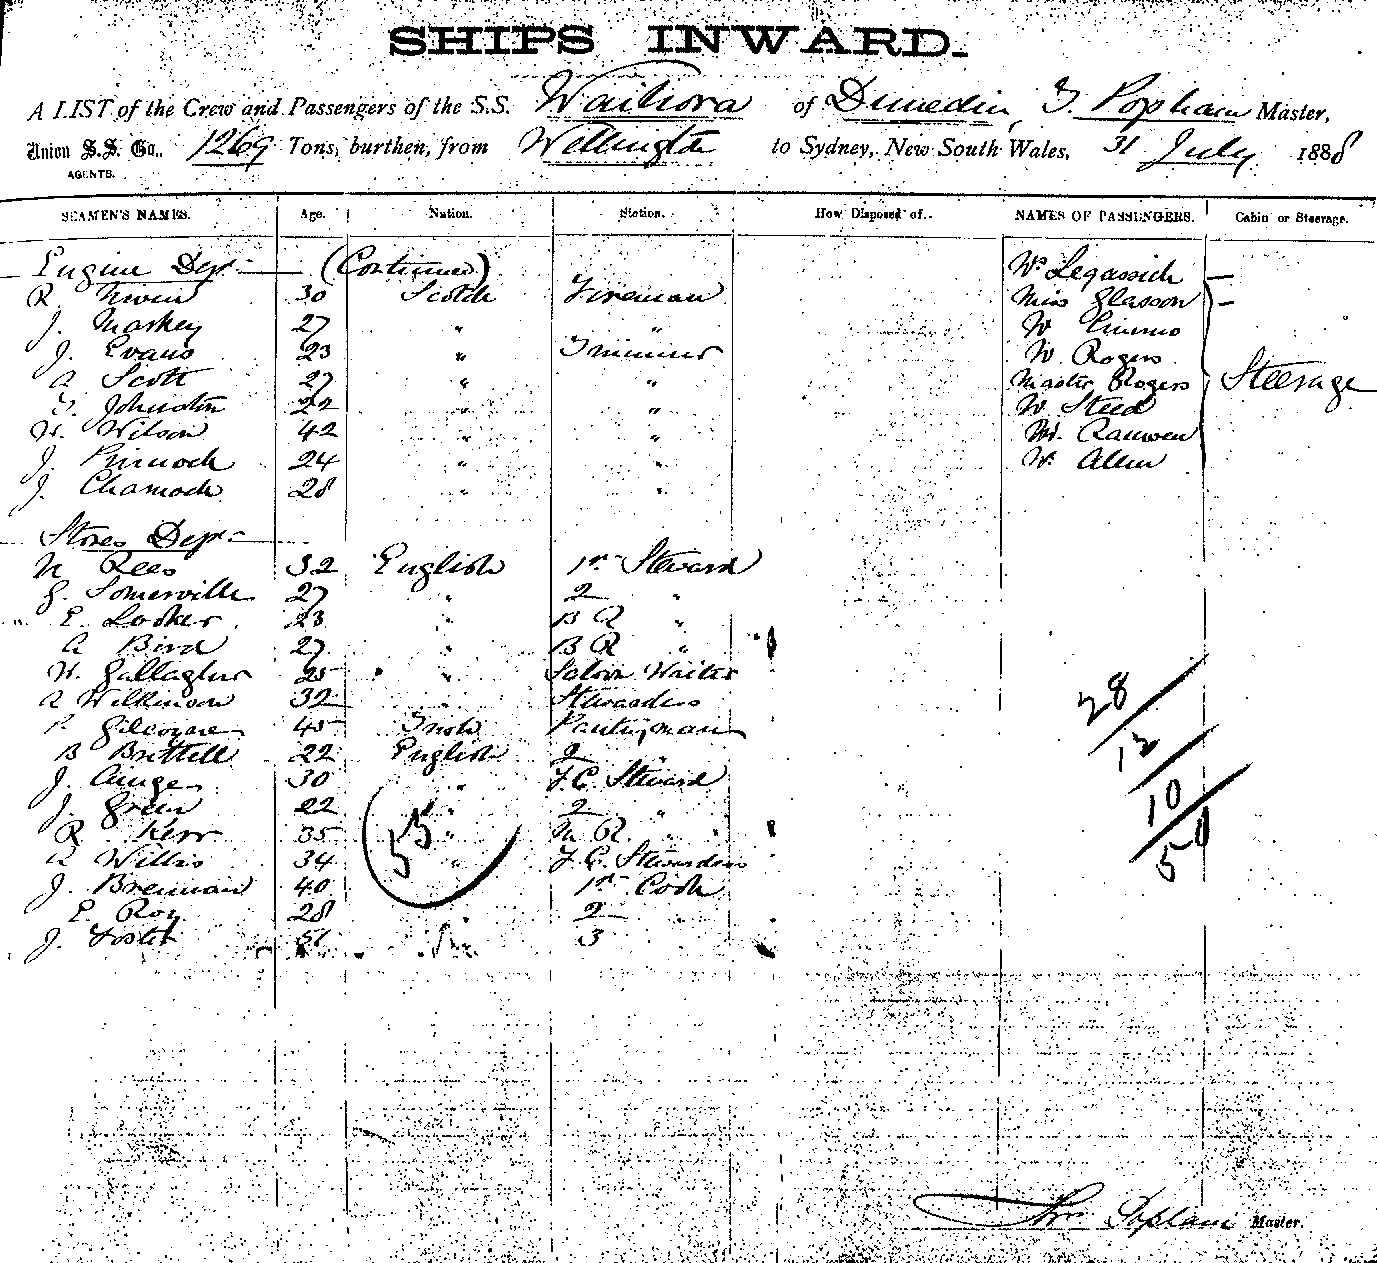 SHIPS INWARD.
A LIST of the Crew and Passengers of the S.S. Waihora of Dunedin, T. Popham Master,
Union S.S. Co., 1269 Tons, burthen, from Wellington to Sydney, New South Wales, 31 July 1888
AGENTS.
SEAMEN'S NAMES. Age. Nation. Station. How Disposed of. NAMES OF PASSENGERS. Cabin or Steerage.
Engine Dept (Continued) Legassick
R. Niven 30 Scotch Fireman Miss Glasson
J. Markey 27 " "
J. Evans 23 " Trimmer W Rogers
A Scott 27 " " Master Rogers Steerage
Johnston 22 " " W Steed
W. Wilson 42 " "
J. Pinnock 24 " " Allen
J. Charnock 28 " "
Stores Dept
N Rees 32 English 1st Steward
G. Somerville 27 " 2 "
E. Looker 23 " B R "
A Bird 27 " B R "
W. Gallagher 25 " Saloon Waiter
A Wilkinson 32 " Stewardess
P. 45 Irish Pantryman
B Brittell 22 English 2
J. 30 " F.C. Steward
J. Green 22 " 2 "
R Kerr 35 " R. " "
A Willis 34 " F.C. Stewardess
J. Brennan 40 1st Cook
E. Roy 28 " 2 "
J. Foster 51 3
55
28
12
10
50
Popham Master.